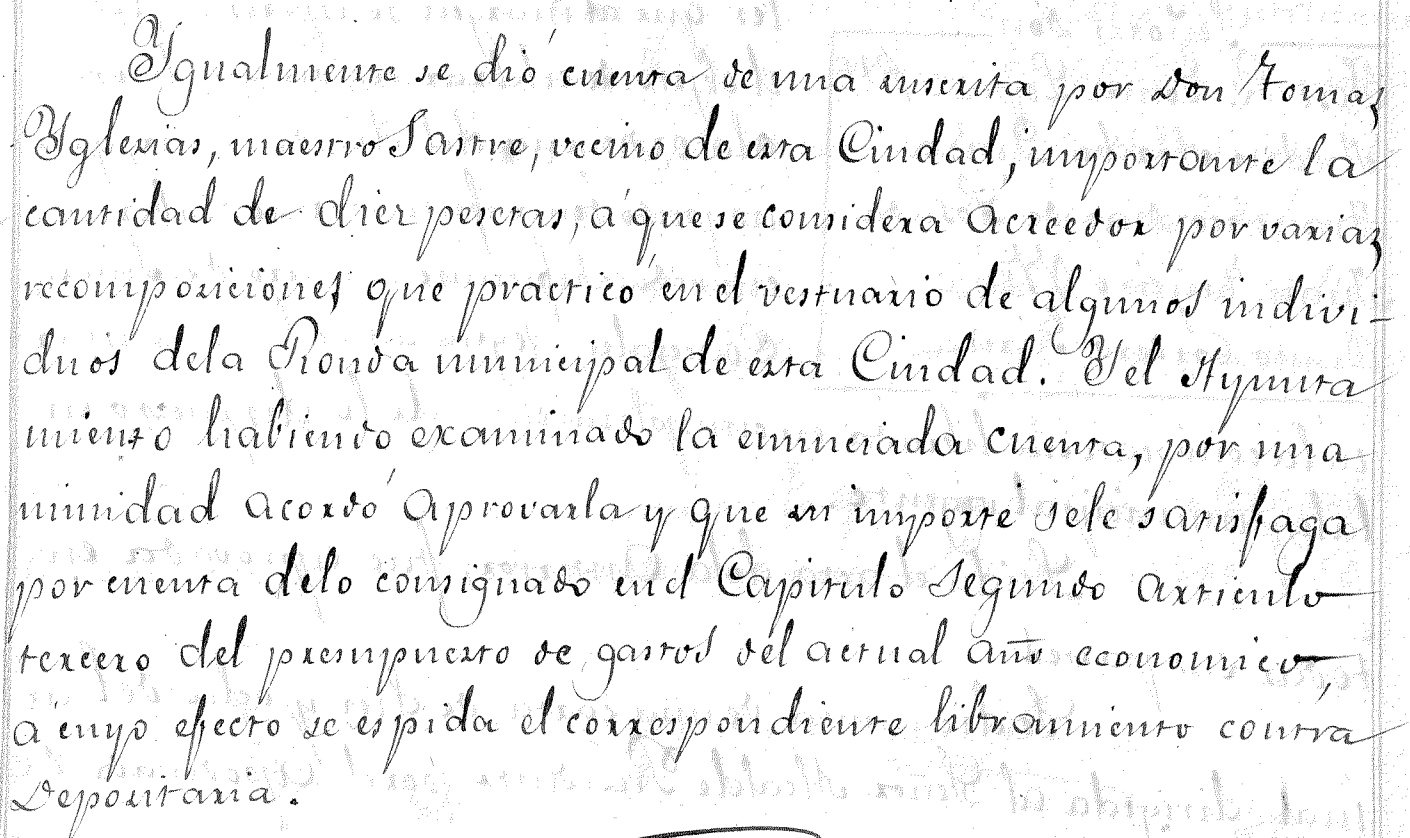 Ygualmente se dió cuenta de una suscrita por Don Tomas
Yglesias, maestro Sastre, vecino de esta Ciudad, importante la
cantidad de diez pesetas, á que se considera acreedor por varias
recomposiciones que practicó en el vestuario de algunos indivi-
duos dela Ronda municipal de esta Ciudad. Y el Ayunta
miento habiendo examinado la enunciada cuenta, por una
nimidad acordó aprovarla y que su importe sele satisfaga
por cuenta delo consignado en el Capitulo Segundo articulo
tercero del presupuesto de gastos del actual año economico,
á cuyo efecto se espida el correspondiente libramiento contra
Depositaria.